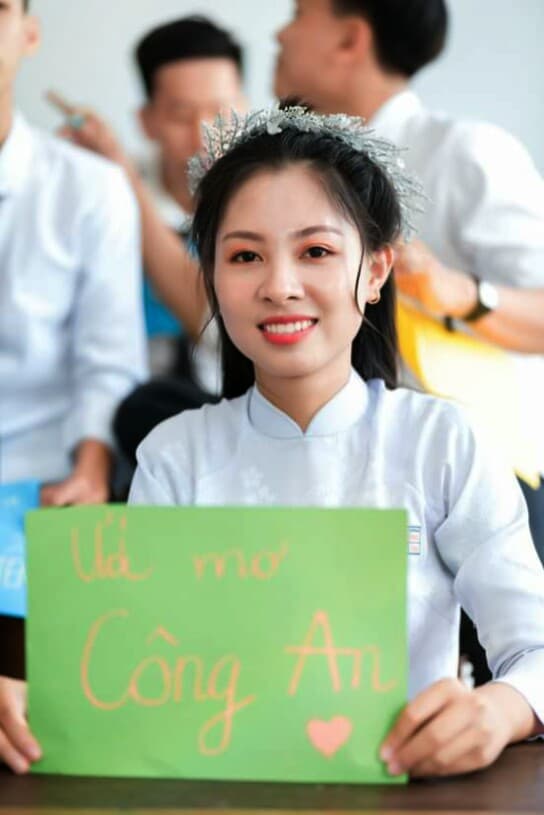 Ước mơ
Công An